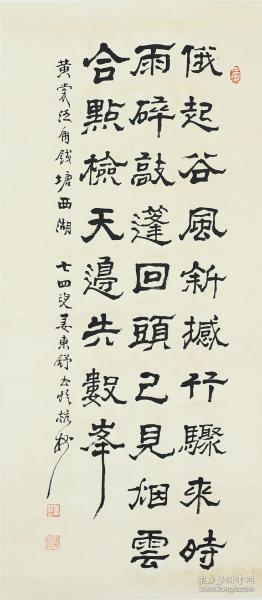 俄起谷風斜撼竹驟來時
雨碎敲蓬回頭已見烟雲
合點檢天邊失數峯
黃裳泛舟錢塘西湖 七四叟姜東舒書於杭州